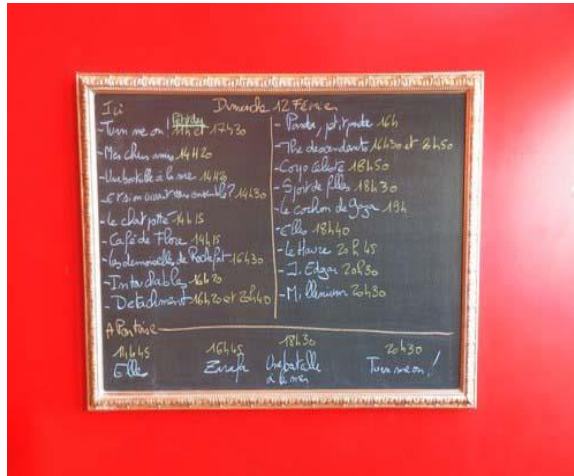 Ici Dimanche 12 Février
- Turn me on! 11h et 17h30
- Mes chers amis 14h20
- Une bouteille à la mer 14h20
- et si on vivait tous ensemble? 14h30
- Le chat potté 14h15
- Café de Flore 14h15
- Les demoiselles de Rochefort 16h30
- Intouchables 16h20
- Detachment 16h20 et 20h40
- Panda, petit panda 16h
- The descendants 16h30 et 20h50
- Corpo celeste 18h50
- Sport de filles 18h30
- Le cochon de gaza 19h
- Elles 18h40
- Le Havre 20h45
- J. Edgar 20h30
- Millenium 20h30
A Pontoise
14h45 16h45 18h30 20h30
Elles Zarafa Une bouteille Turn me on!
à la mer